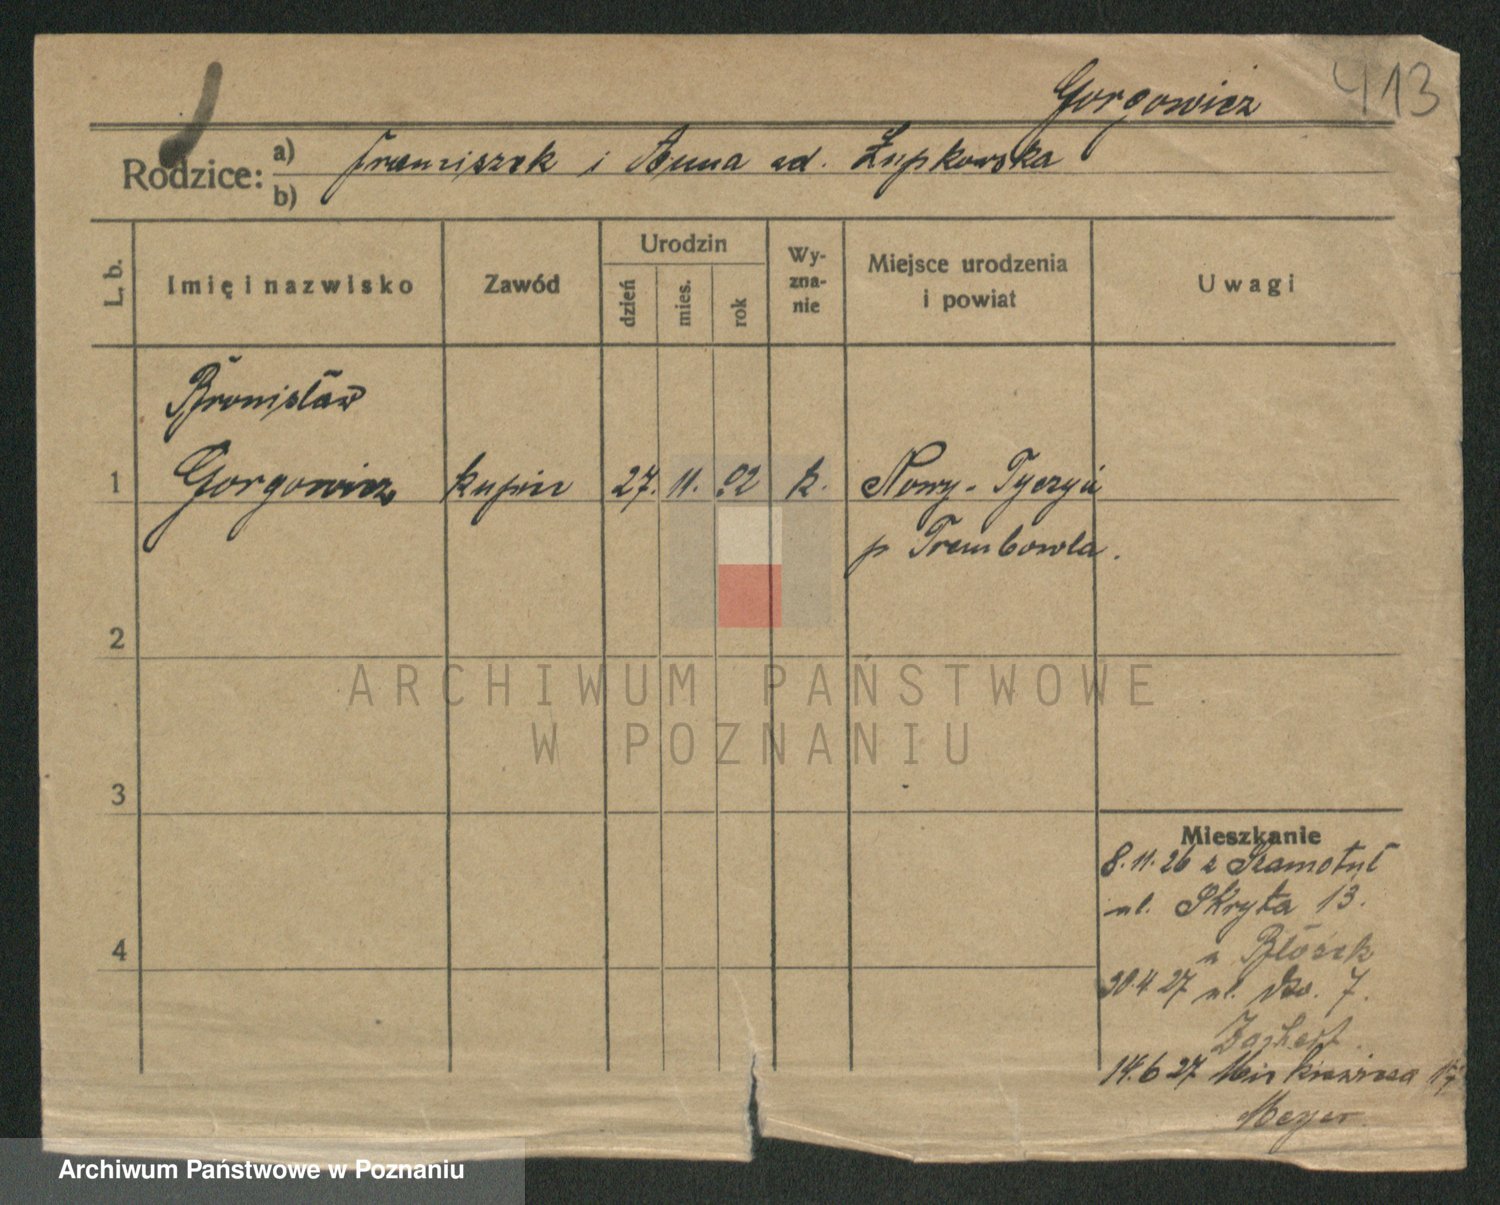 Gorgowicz 413
Rodzice: a) Franciszek i Anna ad. Łupkowska
b)
L. b. Imię i nazwisko Zawód Urodzin dzień mies. rok Wyznanie Miejsce urodzenia i powiat Uwagi
Bronisław
1 Gorgowicz kupiec 27. 11. 02 k. Nowy-Tyczyn
p Trembowla.
2
3
4
Mieszkanie
8.11.26 z Szamotuł
ul. Skryta 13.
u
30.4.27 ul. 7.
14.6.27 Mickiewicza
Meyer
ARCHIWUM PAŃSTWOWE
W POZNANIU
Archiwum Państwowe w Poznaniu